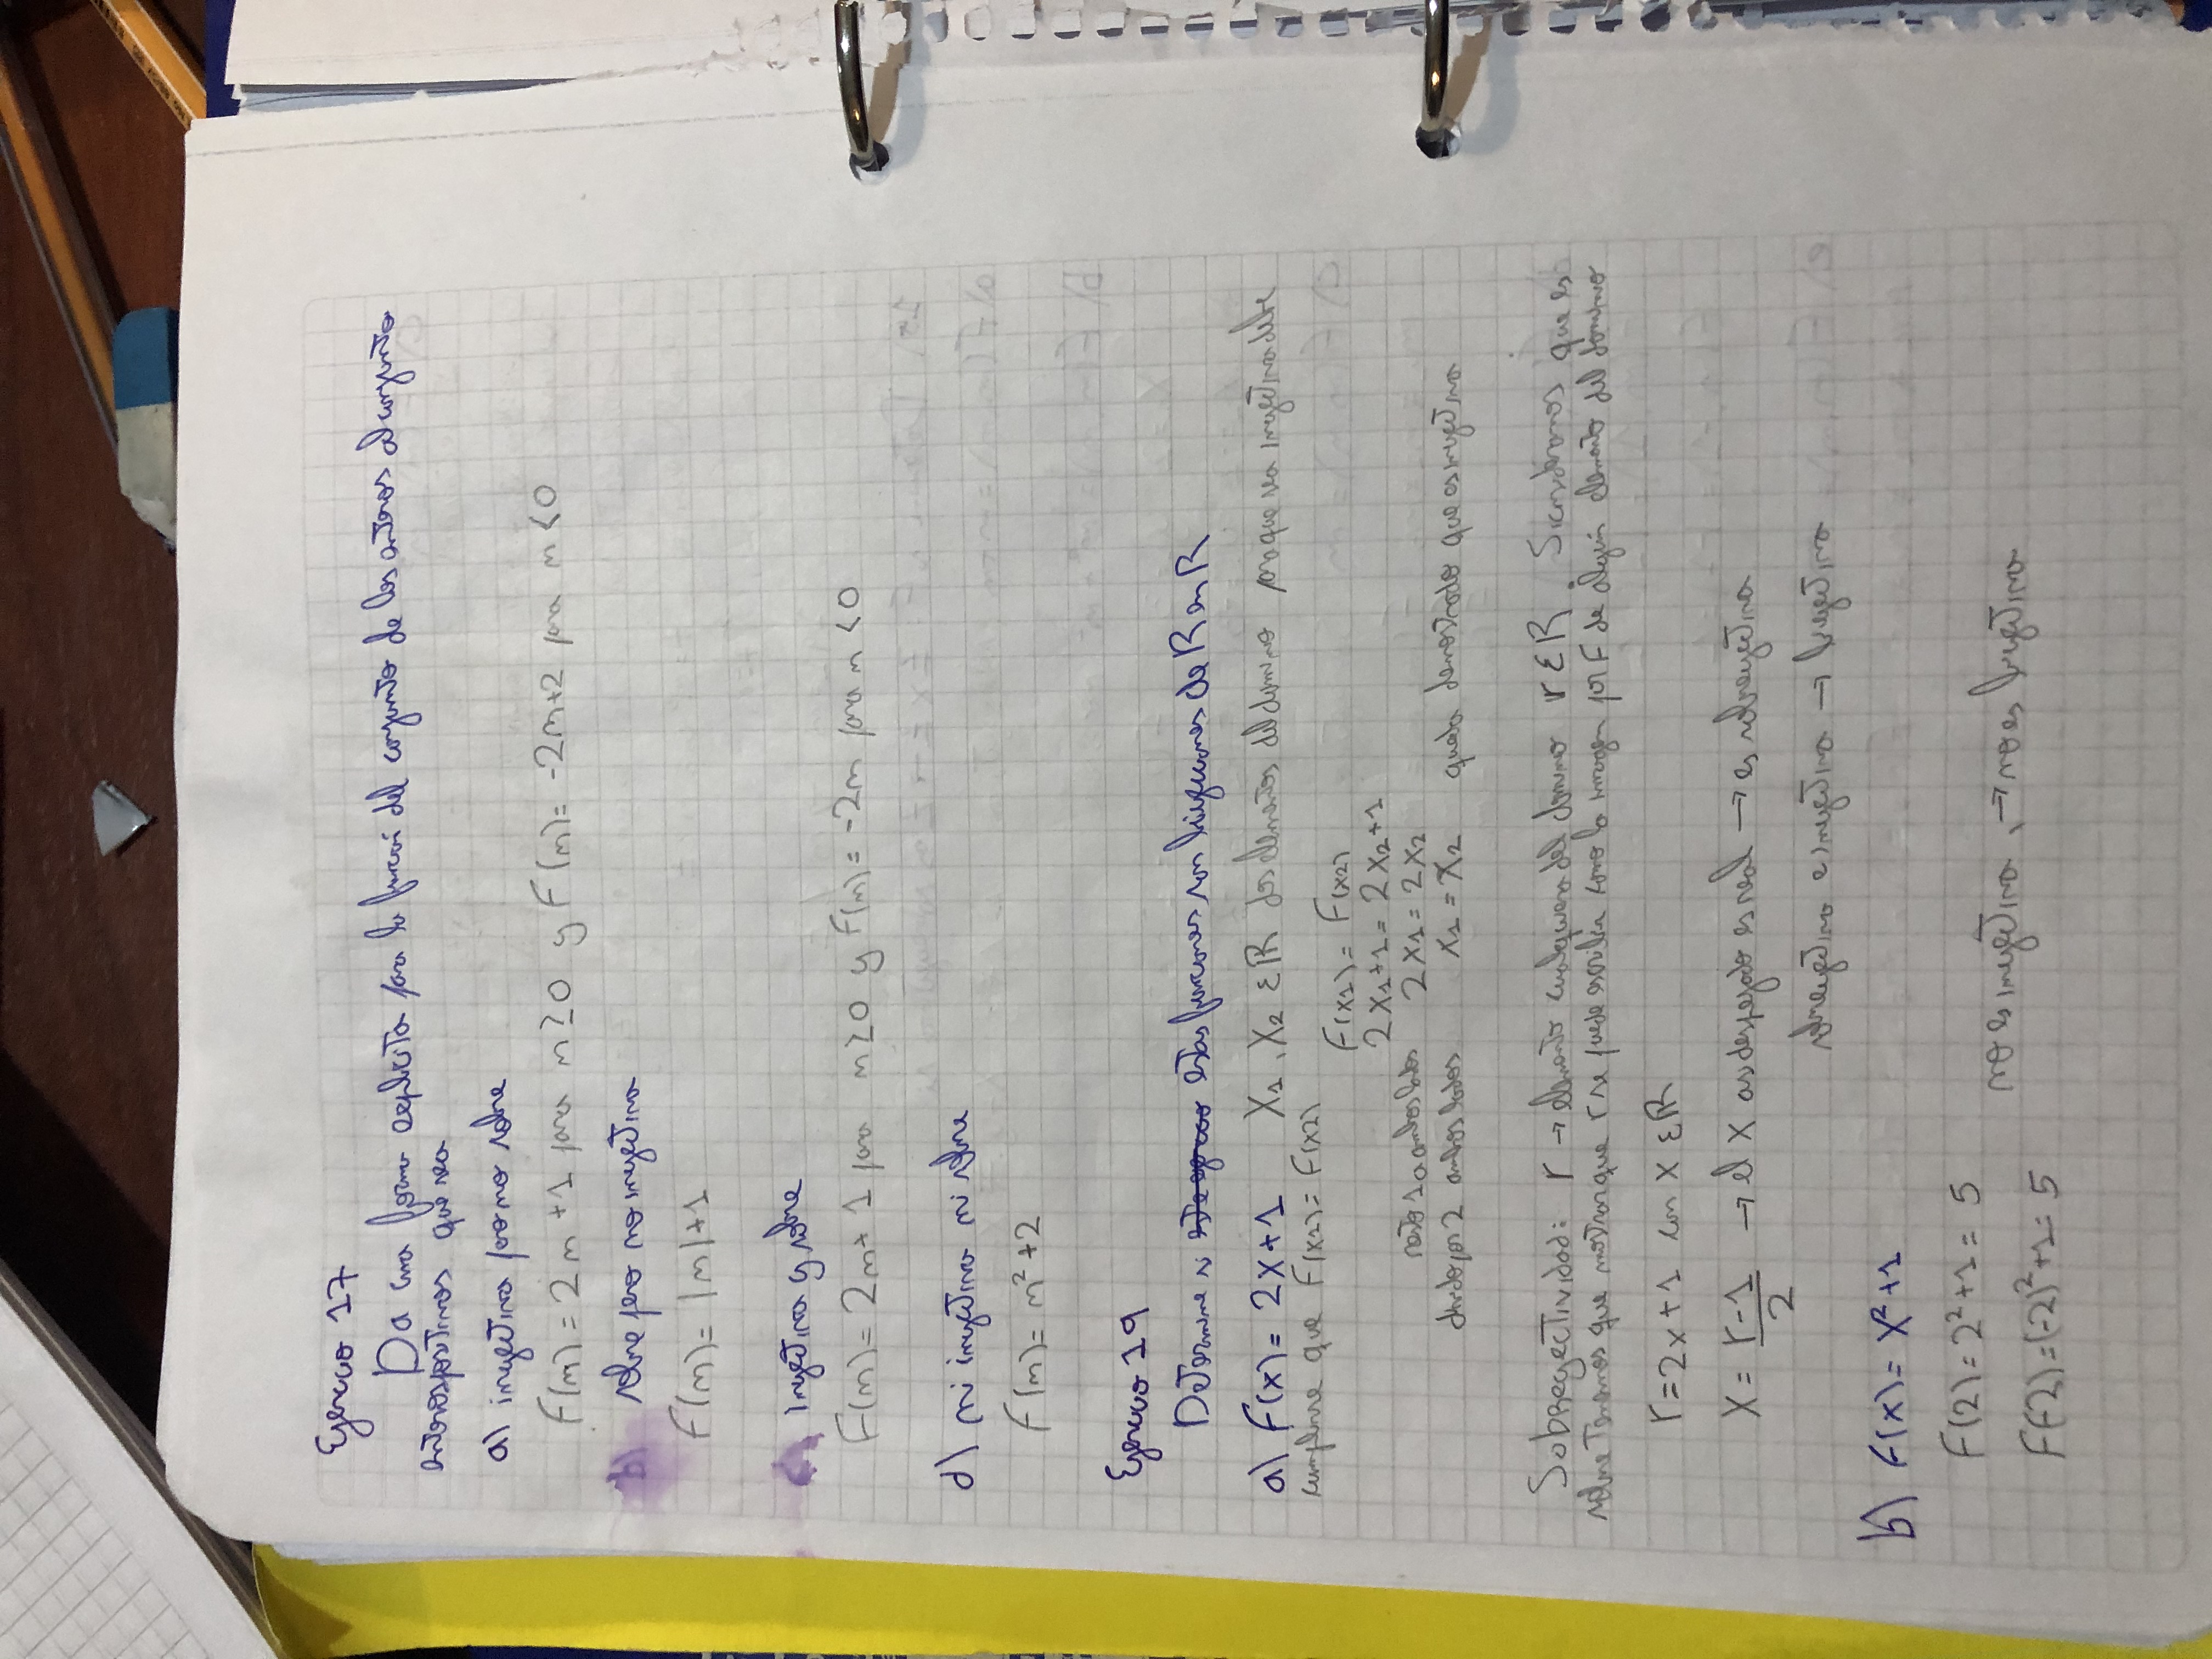 Ejercicio 17
Da una forma explicita para la función del conjunto de los enteros al conjunto
enteros positivos que sea
a) inyectiva pero no sobre
F(n) = 2n + 1 para n ≥ 0 y F(n) = -2n+2 para n < 0
b) sobre pero no inyectiva
F(n) = |n|+1
c) Inyectiva y sobre
F(n) = 2n + 1 para n ≥ 0 y F(n) = -2n para n < 0
d) ni inyectiva ni sobre
F(n) = n² + 2
Ejercicio 19
Determine si estas funciones son biyecciones de R en R
a) F(x) = 2x+1 X₁, X₂ ∈ ℝ dos elementos del dominio para que sea inyectiva debe
cumplirse que F(x₁) = F(x₂)
F(x₁) = F(x₂)
2x₁+1 = 2x₂+1
resto 1 a ambos lados 2x₁ = 2x₂
divido por 2 ambos lados x₁ = x₂ queda demostrado que es inyectiva
Sobreyectividad: r → elemento cualquiera del dominio r ∈ R. Si consideramos que es
sobre tenemos que mostrar que r se puede escribir como la imagen por F de algún elemento del dominio
r = 2x + 1 con x ∈ ℝ
X = r-1/2 → el X asi despejado es real → es sobreyectiva
sobreyectiva e inyectiva → biyectiva
b) F(x) = X² + 1
F(2) = 2² + 1 = 5
no es inyectiva, → no es biyectiva
F(-2) = (-2)² + 1 = 5